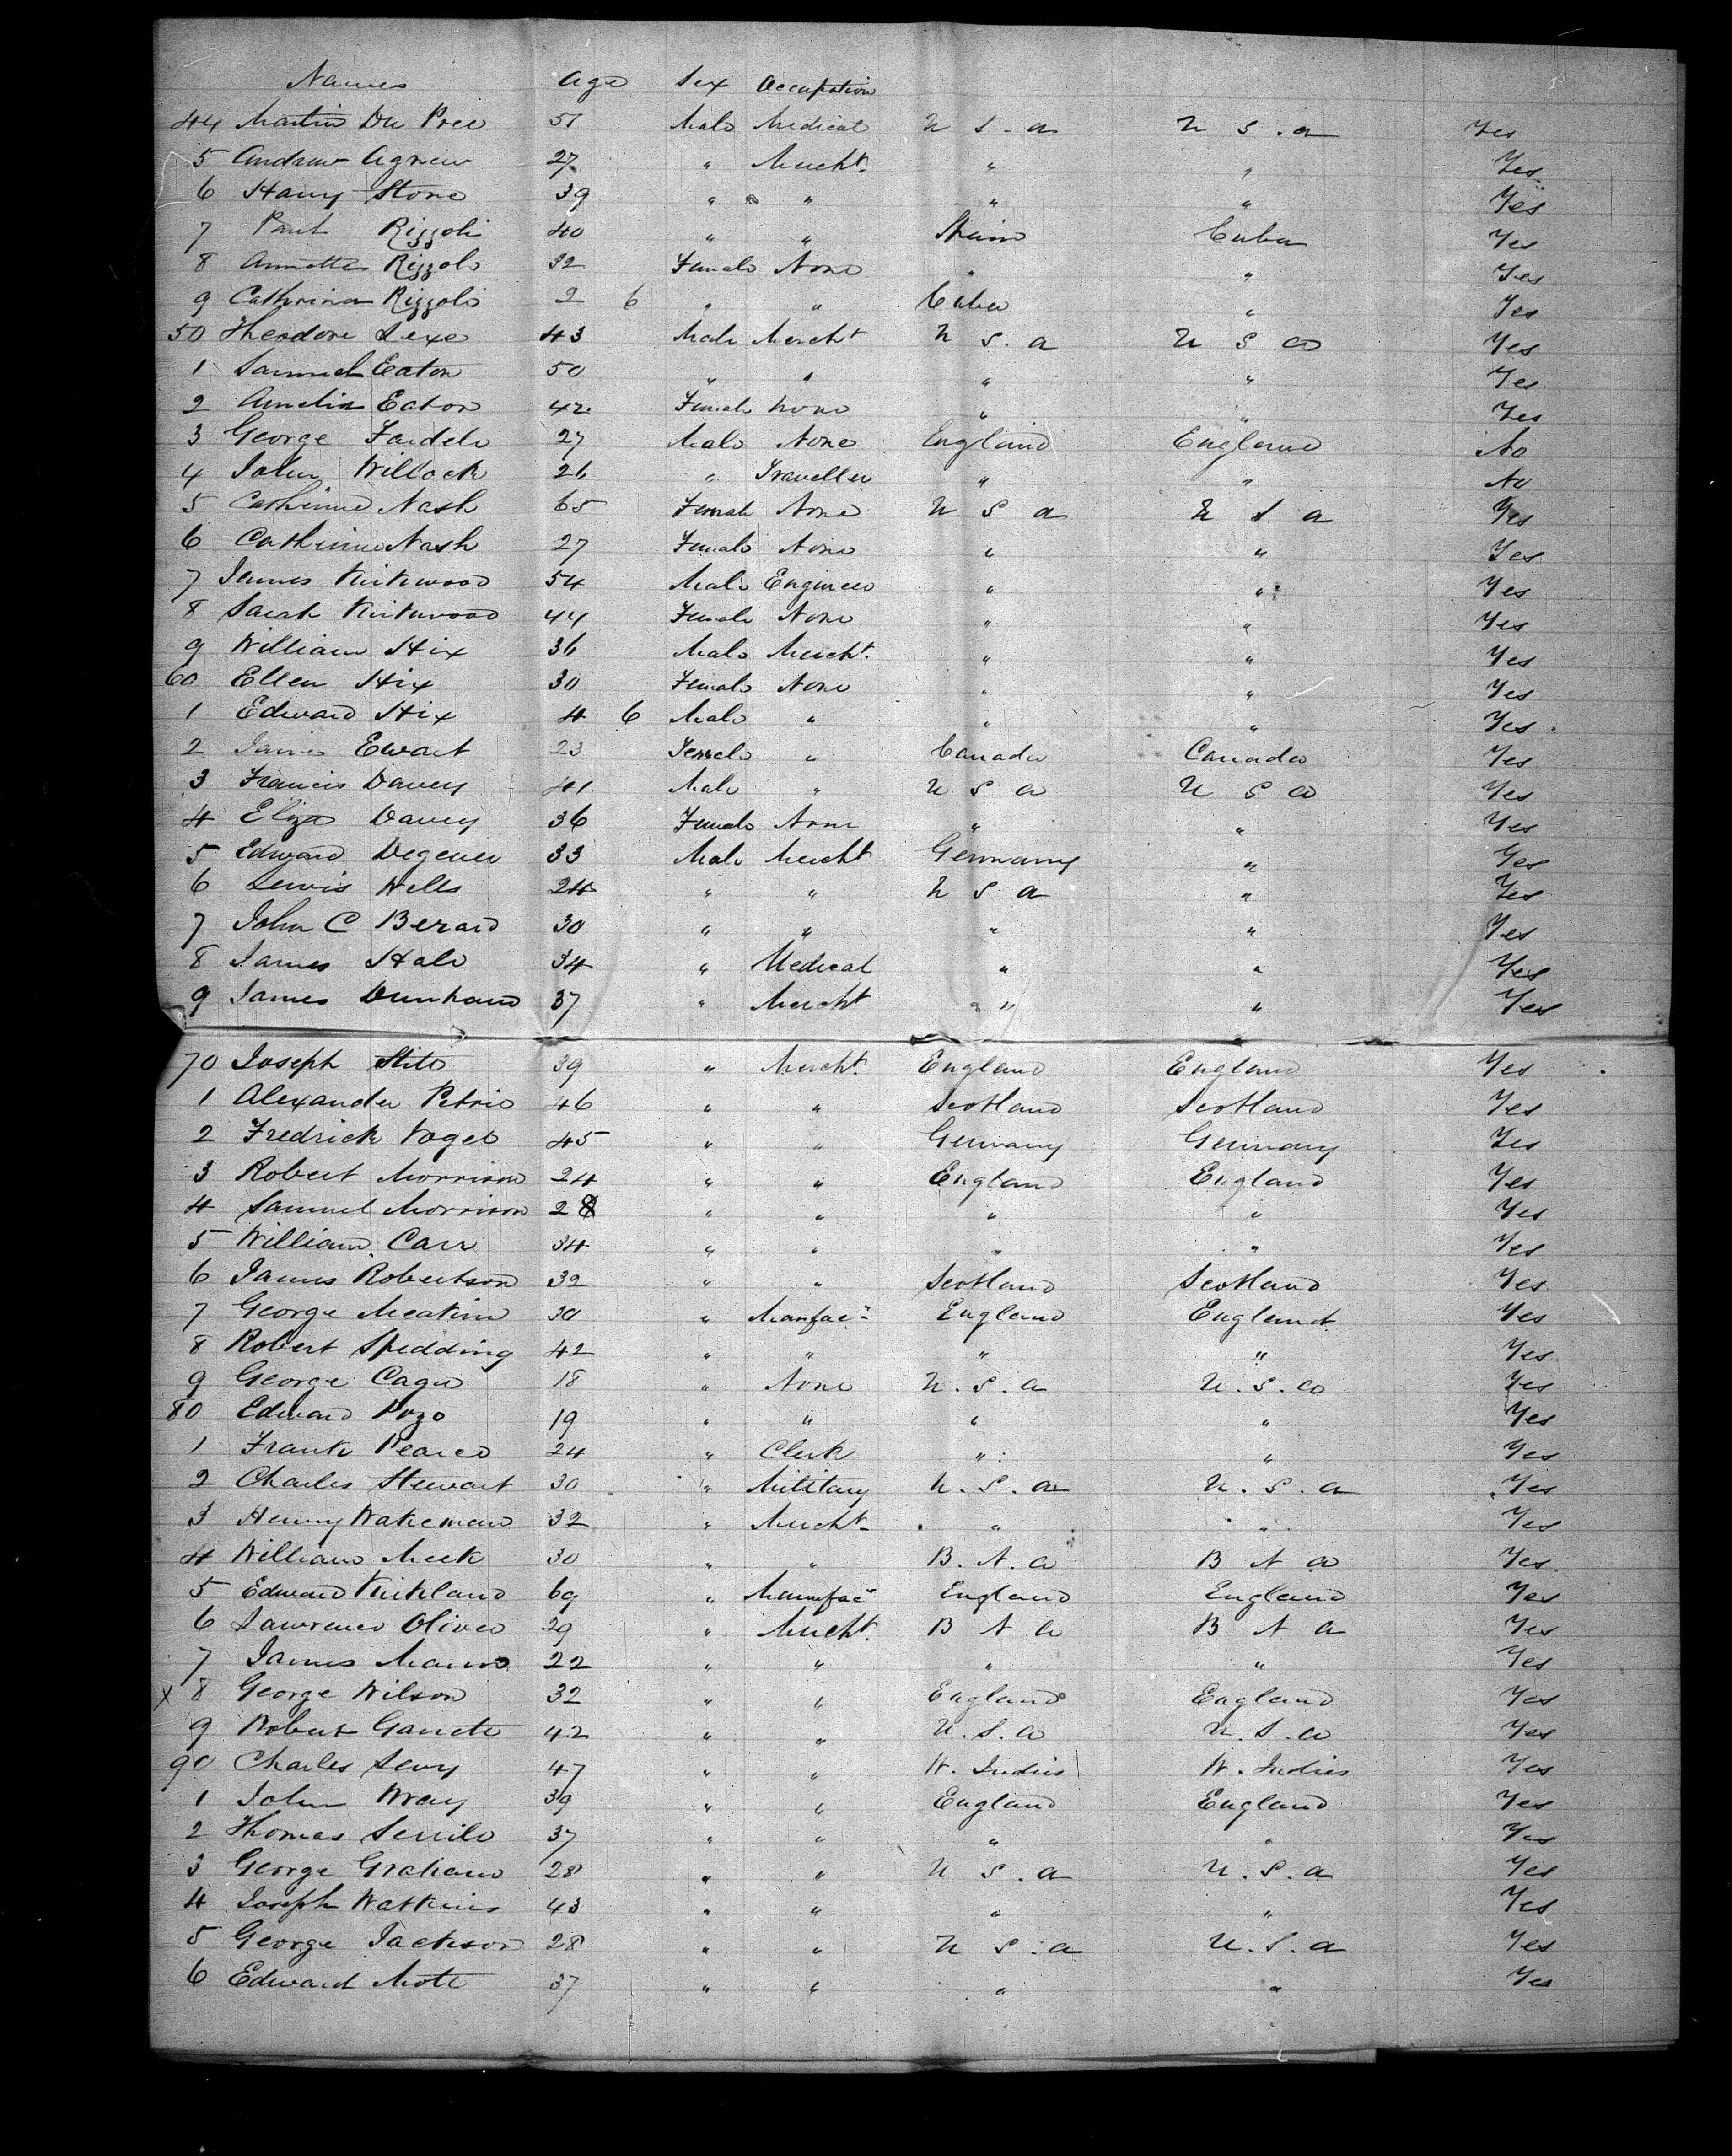 Names Age Sex Occupation
44 Martin Du Pree 51 Male Medical U S. a U S. a Yes
5 Andrew Agnew 27 " Mercht. " " Yes
6 Harry Stone 39 " " " " Yes
7 Paul Rizzoli 40 " " Spain Cuba Yes
8 Annetta Rizzoli 32 Female None " " Yes
9 Catherina Rizzoli 2 6 " " Cuba " Yes
50 Theodore Sexe 43 Male Mercht U S. a U S a Yes
1 Samuel Eaton 50 " " " " Yes
2 Amelia Eaton 42 Female None " " Yes
3 George 27 Male None England England No
4 John Willock 26 " Traveller " " No
5 Catherine Nash 65 Female None U S a U S a Yes
6 Catherine Nash 27 Female None " " Yes
7 James Kirkwood 54 Male Engineer " " Yes
8 Sarah Kirkwood 44 Female None " " Yes
9 William Hix 36 Male Mercht. " " Yes
60 Ellen Hix 30 Female None " " Yes
1 Edward Hix 4 6 Male " " " Yes
2 Ewart 23 Female " Canada Canada Yes
3 Francis Davey 41 Male " U S a U S a Yes
4 Eliza Davey 36 Female None " " Yes
5 Edward Degener 33 Male Mercht Germany " Yes
6 Lewis Wells 24 " " U S a " Yes
7 John C Berard 30 " " " " Yes
8 James Hale 34 " Medical " " Yes
9 James Dunham 37 " Mercht " " Yes
70 Joseph 39 " Mercht. England England Yes
1 Alexander Petrie 46 " " Scotland Scotland Yes
2 Fredrick Vogel 45 " " Germany Germany Yes
3 Robert Morrison 24 " " England England Yes
4 Samuel Morrison 28 " " " " Yes
5 William Carr 34 " " " " Yes
6 James Robertson 32 " " Scotland Scotland Yes
7 George Meakin 30 " Manfac" England England Yes
8 Robert Spedding 42 " " " " Yes
9 George 18 " None U. S. a U. S. a Yes
80 Edward Pozo 19 " " " " Yes
1 Frank Pearce 24 " Clerk " " Yes
2 Charles Stewart 30 " Military U. S. a U. S. a Yes
3 Henry Wakeman 32 " Mercht " " Yes
4 William Meek 30 " " B. N. a B N a Yes
5 Edward Kirkland 69 " Manufac" England England Yes
6 Lawrence Oliver 29 " Mercht. B N a B N a Yes
7 James Mann 22 " " " " Yes
x 8 George Wilson 32 " " England England Yes
9 Robert 42 " " U. S. a U. S. a Yes
90 Charles Levy 47 " " W. Indies W. Indies Yes
1 John Wray 39 " " England England Yes
2 Thomas 37 " " " " Yes
3 George Graham 28 " " U S. a U. S. a Yes
4 Joseph Watkins 43 " " " " Yes
5 George Jackson 28 " " U S. a U. S. a Yes
6 Edward Mott 37 " " " " Yes